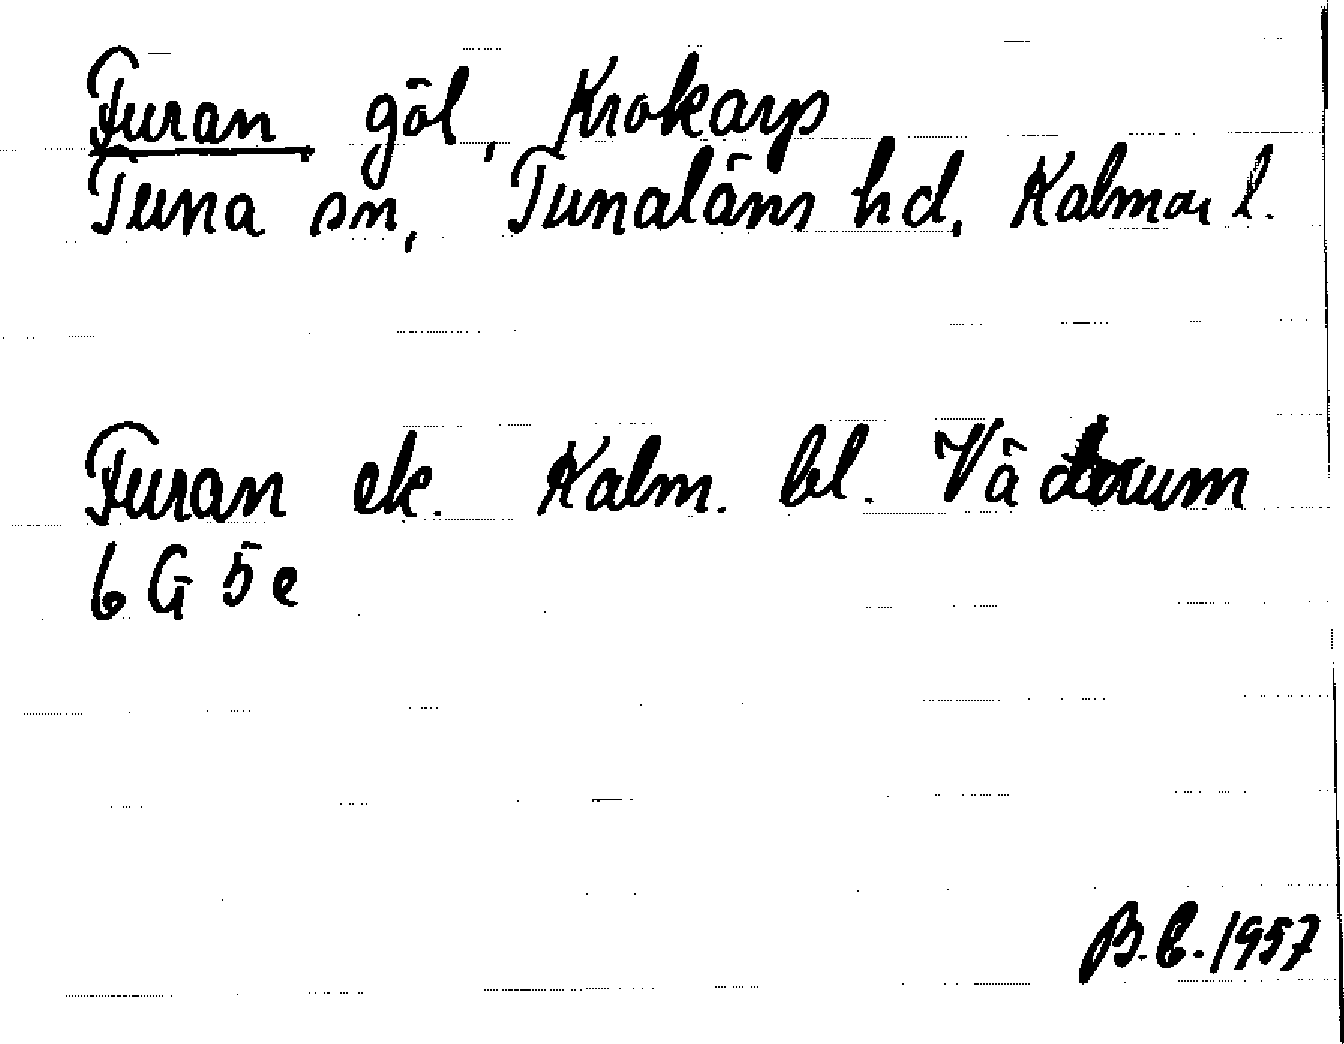 Furan göl, Krokarp
Tuna sn, Tunaläns hd, Kalmar l.
Furan ek. Kalm. bl. Vädorum
6 G 5 e
B.C. 1957